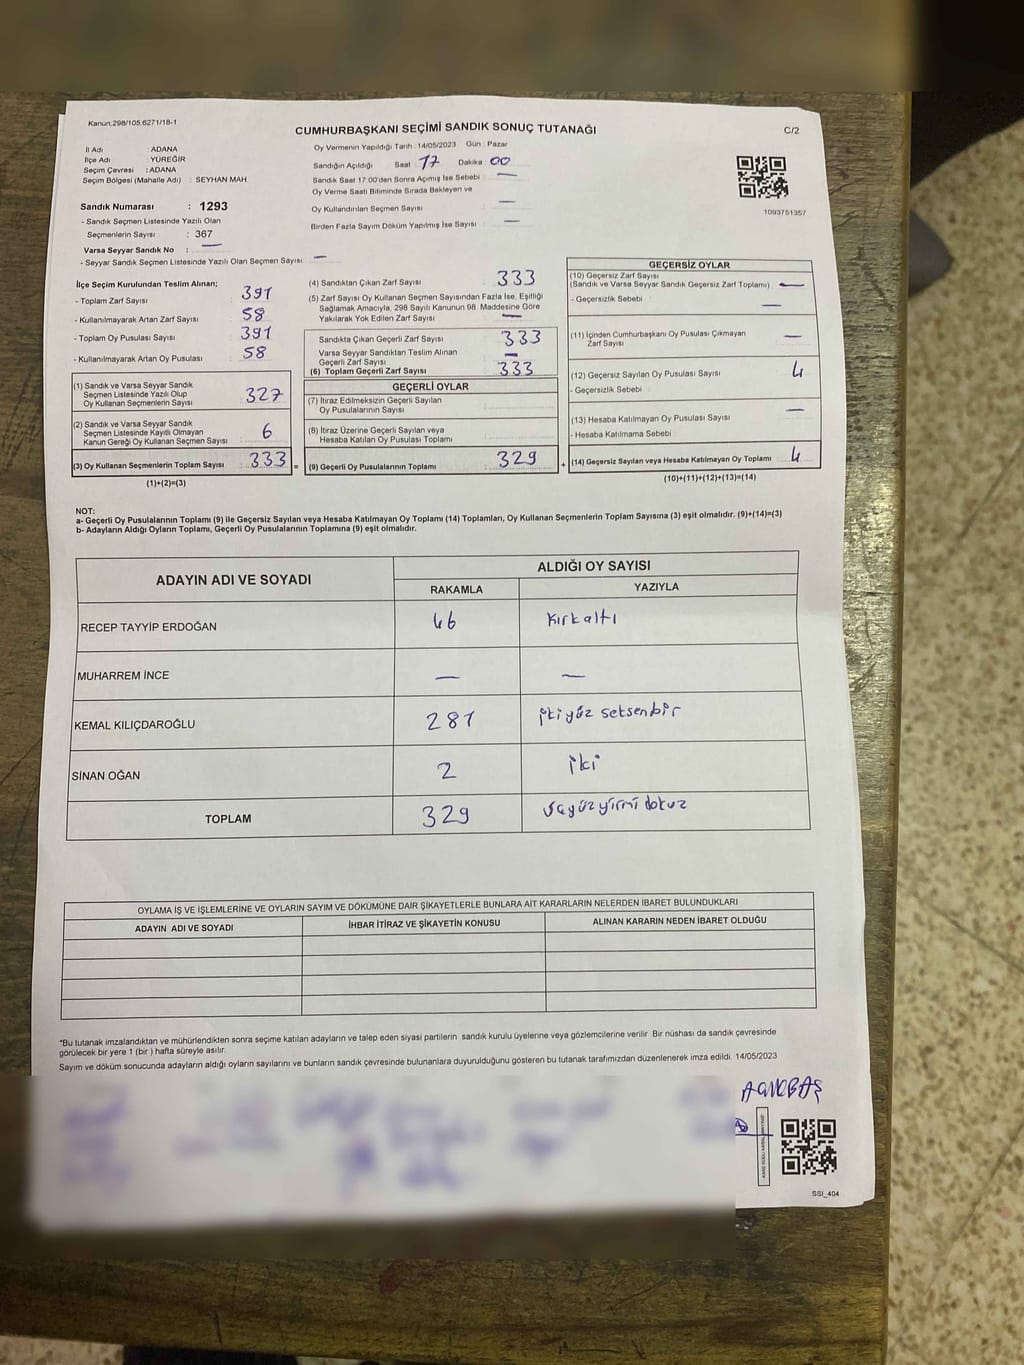 Kanun:298/105.6271/18-1
CUMHURBAŞKANI SEÇİMİ SANDIK SONUÇ TUTANAĞI
C/2
İl Adı : ADANA
İlçe Adı : YÜREĞİR
Seçim Çevresi : ADANA
Seçim Bölgesi (Mahalle Adı) : SEYHAN MAH.
Sandık Numarası : 1293
- Sandık Seçmen Listesinde Yazılı Olan
Seçmenlerin Sayısı : 367
Varsa Seyyar Sandık No : —
- Seyyar Sandık Seçmen Listesinde Yazılı Olan Seçmen Sayısı : —
Oy Vermenin Yapıldığı Tarih : 14/05/2023 Gün : Pazar
Sandığın Açıldığı Saat : 17 Dakika : 00
Sandık Saat 17:00'den Sonra Açımış İse Sebebi : —
Oy Verme Saati Bitiminde Sırada Bekleyen ve
Oy Kullandırılan Seçmen Sayısı : —
Birden Fazla Sayım Döküm Yapılmış İse Sayısı : —
1093751357
İlçe Seçim Kurulundan Teslim Alınan;
- Toplam Zarf Sayısı : 391
- Kullanılmayarak Artan Zarf Sayısı : 58
- Toplam Oy Pusulası Sayısı : 391
- Kullanılmayarak Artan Oy Pusulası : 58
(1) Sandık ve Varsa Seyyar Sandık
Seçmen Listesinde Yazılı Olup
Oy Kullanan Seçmenlerin Sayısı : 327
(2) Sandık ve Varsa Seyyar Sandık
Seçmen Listesinde Kayıtlı Olmayan
Kanun Gereği Oy Kullanan Seçmen Sayısı : 6
(3) Oy Kullanan Seçmenlerin Toplam Sayısı : 333 =
(1)+(2)=(3)
(4) Sandıktan Çıkan Zarf Sayısı : 333
(5) Zarf Sayısı Oy Kullanan Seçmen Sayısından Fazla İse, Eşitliği
Sağlamak Amacıyla, 298 Sayılı Kanunun 98. Maddesine Göre
Yakılarak Yok Edilen Zarf Sayısı : —
Sandıkta Çıkan Geçerli Zarf Sayısı : 333
Varsa Seyyar Sandıktan Teslim Alınan
Geçerli Zarf Sayısı : —
(6) Toplam Geçerli Zarf Sayısı : 333
GEÇERLİ OYLAR
(7) İtiraz Edilmeksizin Geçerli Sayılan
Oy Pusulalarının Sayısı :
(8) İtiraz Üzerine Geçerli Sayılan veya
Hesaba Katılan Oy Pusulası Toplamı :
(9) Geçerli Oy Pusulalarının Toplamı : 329 +
GEÇERSİZ OYLAR
(10) Geçersiz Zarf Sayısı
(Sandık ve Varsa Seyyar Sandık Geçersiz Zarf Toplamı) : —
- Geçersizlik Sebebi : —
(11) İçinden Cumhurbaşkanı Oy Pusulası Çıkmayan
Zarf Sayısı : —
(12) Geçersiz Sayılan Oy Pusulası Sayısı : 4
- Geçersizlik Sebebi :
(13) Hesaba Katılmayan Oy Pusulası Sayısı : —
- Hesaba Katılmama Sebebi :
(14) Geçersiz Sayılan veya Hesaba Katılmayan Oy Toplamı : 4
(10)+(11)+(12)+(13)=(14)
NOT:
a- Geçerli Oy Pusulalarının Toplamı (9) ile Geçersiz Sayılan veya Hesaba Katılmayan Oy Toplamı (14) Toplamları, Oy Kullanan Seçmenlerin Toplam Sayısına (3) eşit olmalıdır. (9)+(14)=(3)
b- Adayların Aldığı Oyların Toplamı, Geçerli Oy Pusulalarının Toplamına (9) eşit olmalıdır.
ADAYIN ADI VE SOYADI ALDIĞI OY SAYISI
RAKAMLA YAZIYLA
RECEP TAYYİP ERDOĞAN 46 kırkaltı
MUHARREM İNCE — —
KEMAL KILIÇDAROĞLU 281 ikiyüz seksenbir
SİNAN OĞAN 2 iki
TOPLAM 329 üçyüzyirmi dokuz
OYLAMA İŞ VE İŞLEMLERİNE VE OYLARIN SAYIM VE DÖKÜMÜNE DAİR ŞİKAYETLERLE BUNLARA AİT KARARLARIN NELERDEN İBARET BULUNDUKLARI
ADAYIN ADI VE SOYADI İHBAR İTİRAZ VE ŞİKAYETİN KONUSU ALINAN KARARIN NEDEN İBARET OLDUĞU
*Bu tutanak imzalandıktan ve mühürlendikten sonra seçime katılan adayların ve talep eden siyasi partilerin sandık kurulu üyelerine veya gözlemcilerine verilir. Bir nüshası da sandık çevresinde
görülecek bir yere 1 (bir ) hafta süreyle asılır.
Sayım ve döküm sonucunda adayların aldığı oyların sayılarını ve bunların sandık çevresinde bulunanlara duyurulduğunu gösteren bu tutanak tarafımızdan düzenlenerek imza edildi. 14/05/2023
SSİ_404